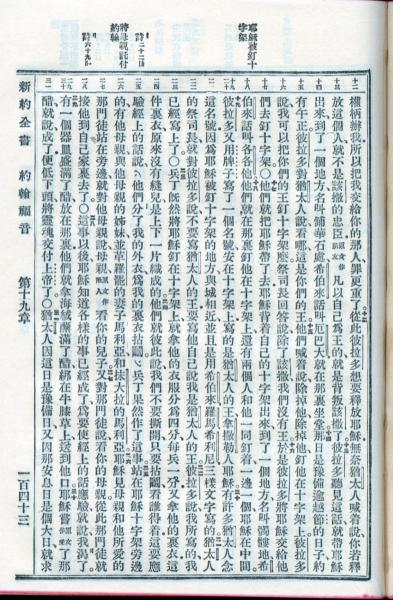 耶穌被釘十字架
詩二十二18
將母親託付約翰
詩六十九21
權柄辦我所以把我交給你的人罪更重了從此彼拉多想要釋放耶穌無奈猶太人喊着說你若釋
放這個人就不是該撒的忠臣原文作朋友凡以自己為王的就是背叛該撒了彼拉多聽見這話就帶耶穌
出來到了一個地方名叫鋪華石處希伯來話叫厄巴大就在那裏坐堂那日是豫備逾越節的日子約
有午正彼拉多對猶太人說看哪這是你們的王他們喊着說除掉他除掉他釘他在十字架上彼拉多
說我可以把你們的王釘十字架麼祭司長回答說除了該撒我們沒有王於是彼拉多將耶穌交給他
們去釘十字架○他們就把耶穌帶了去耶穌背着自己的十字架出來到了一個地方名叫髑髏地希
伯來話叫各各他他們就在那裏釘他在十字架上還有兩個人和他一同釘着一邊一個耶穌在中間
彼拉多又用牌子寫了一個名號安在十字架上寫的是猶太人的王拿撒勒人耶穌有許多猶太人念
這名號因為耶穌被釘十字架的地方與城相近並且是用希伯來羅馬希利尼三樣文字寫的猶太人
的祭司長就對彼拉多說不要寫猶太人的王要寫他自己說我是猶太人的王彼拉多說我所寫的我
已經寫上了○兵丁旣然將耶穌釘在十字架上就拿他的衣服分為四分每兵一分又拿他的裏衣這
件裏衣原來沒有縫兒是上下一片織成的他們就彼此說我們不要撕開只要拈鬮看誰得着這要應
驗經上的話說他們分了我的外衣為我的裏衣拈鬮兵丁果然作了這事站在耶穌十字架旁邊
的有他母親與他母親的姊妹並革羅罷的妻子馬利亞和抹大拉的馬利亞耶穌見母親和他所愛的
那門徒站在旁邊就對他母親說母親原文作婦人看你的兒子又對那門徒說看你的母親從此那門徒就
接他到自己家裏去了○這事以後耶穌知道各樣的事已經成了為要使經上的話應驗就說我渴了
有一個器皿盛滿了醋放在那裏他們就拿海絨蘸滿了醋綁在牛膝草上送到他口耶穌嘗原文作受了那
醋就說成了便低下頭將靈魂交付上帝了○猶太人因這日是豫備日又因那安息日是個大日就求
新約全書 約翰福音 第十九章 一百四十三